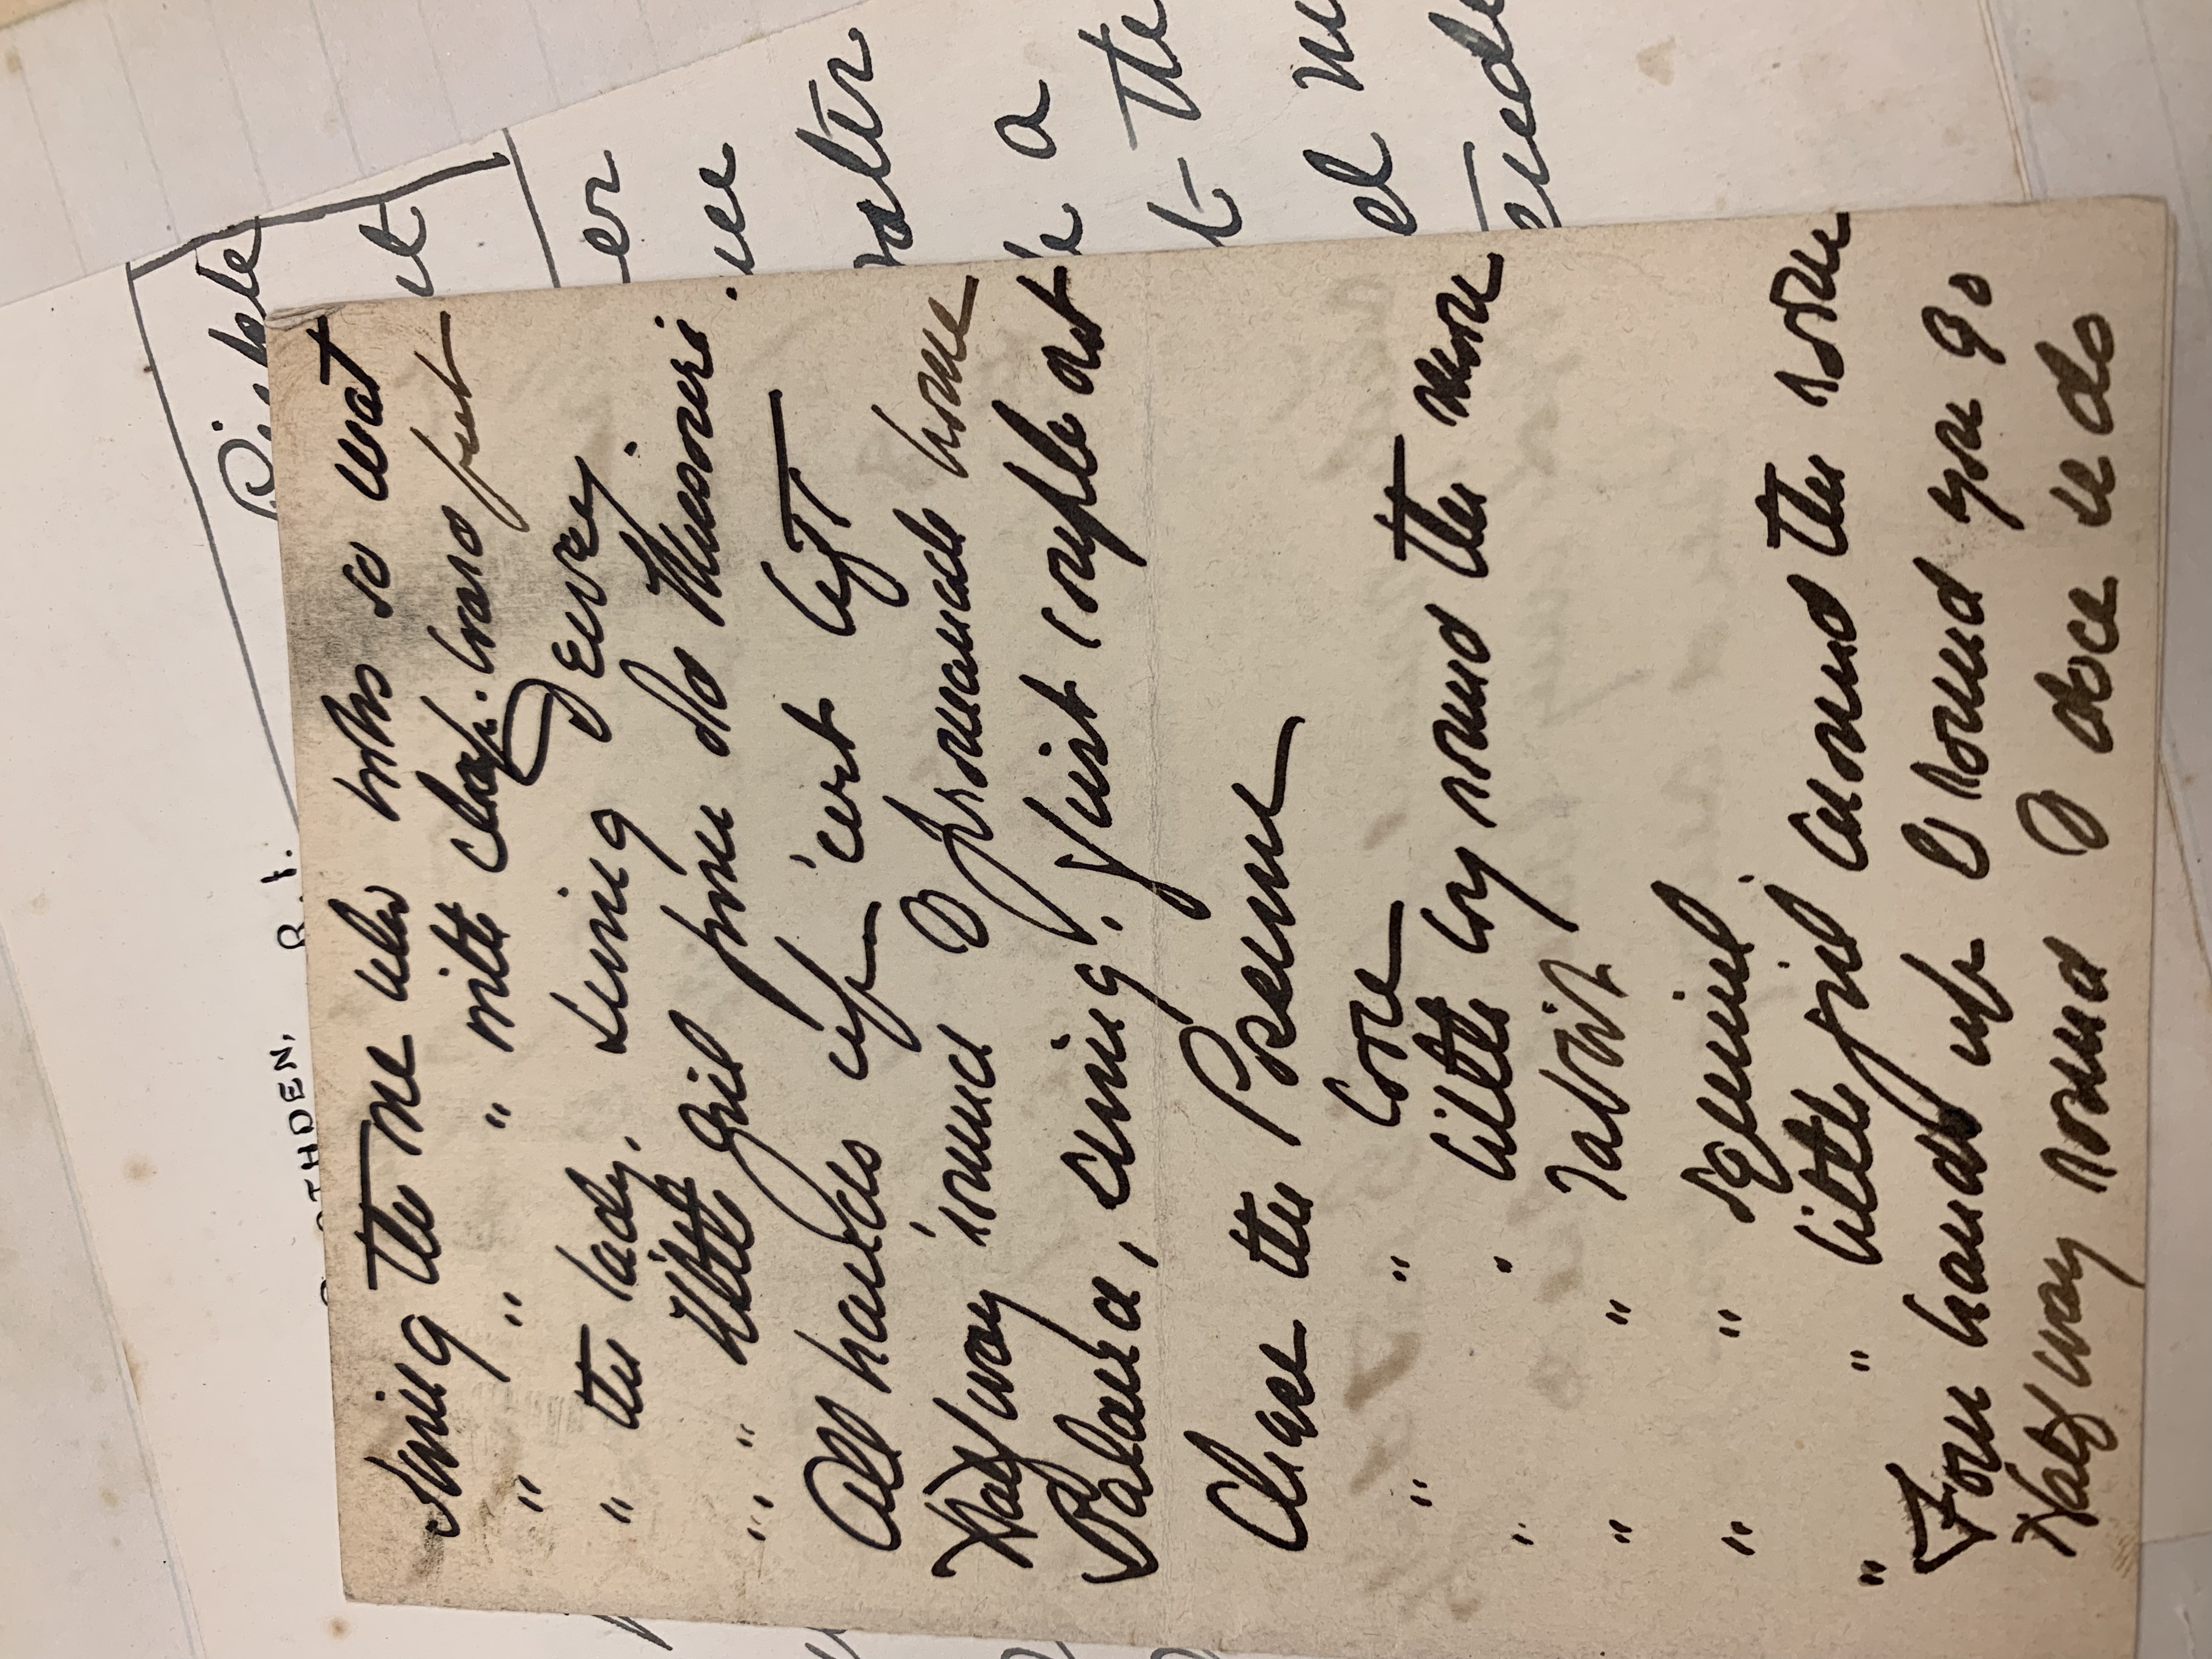 THDEN,
R.I.
Pickle
it
Swing the one who looks so neat
" " " with clap-board feet
" the lady, swing Dewey
" , " little girl from old Missouri.
er
All hands up 'ert left
ater
Half way 'round & promanade home
Balance, swing. First couple out
a
t the
Chase the Possum
" " Coon
" " little boy round the moon
el
" " rabbit
" " squirrel.
" " little girl around the room
Four hands up & round you go
Half way round & doce se do